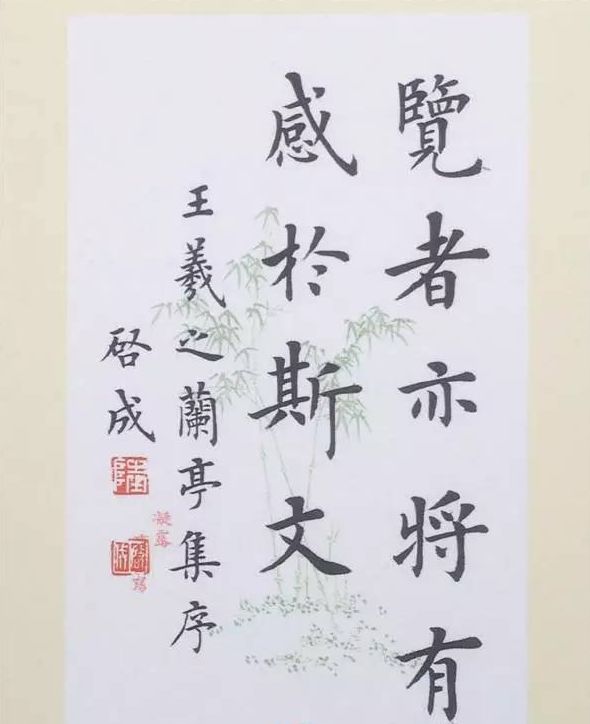 覽者亦將有
感於斯文
王羲之蘭亭集序
啓成
凝露